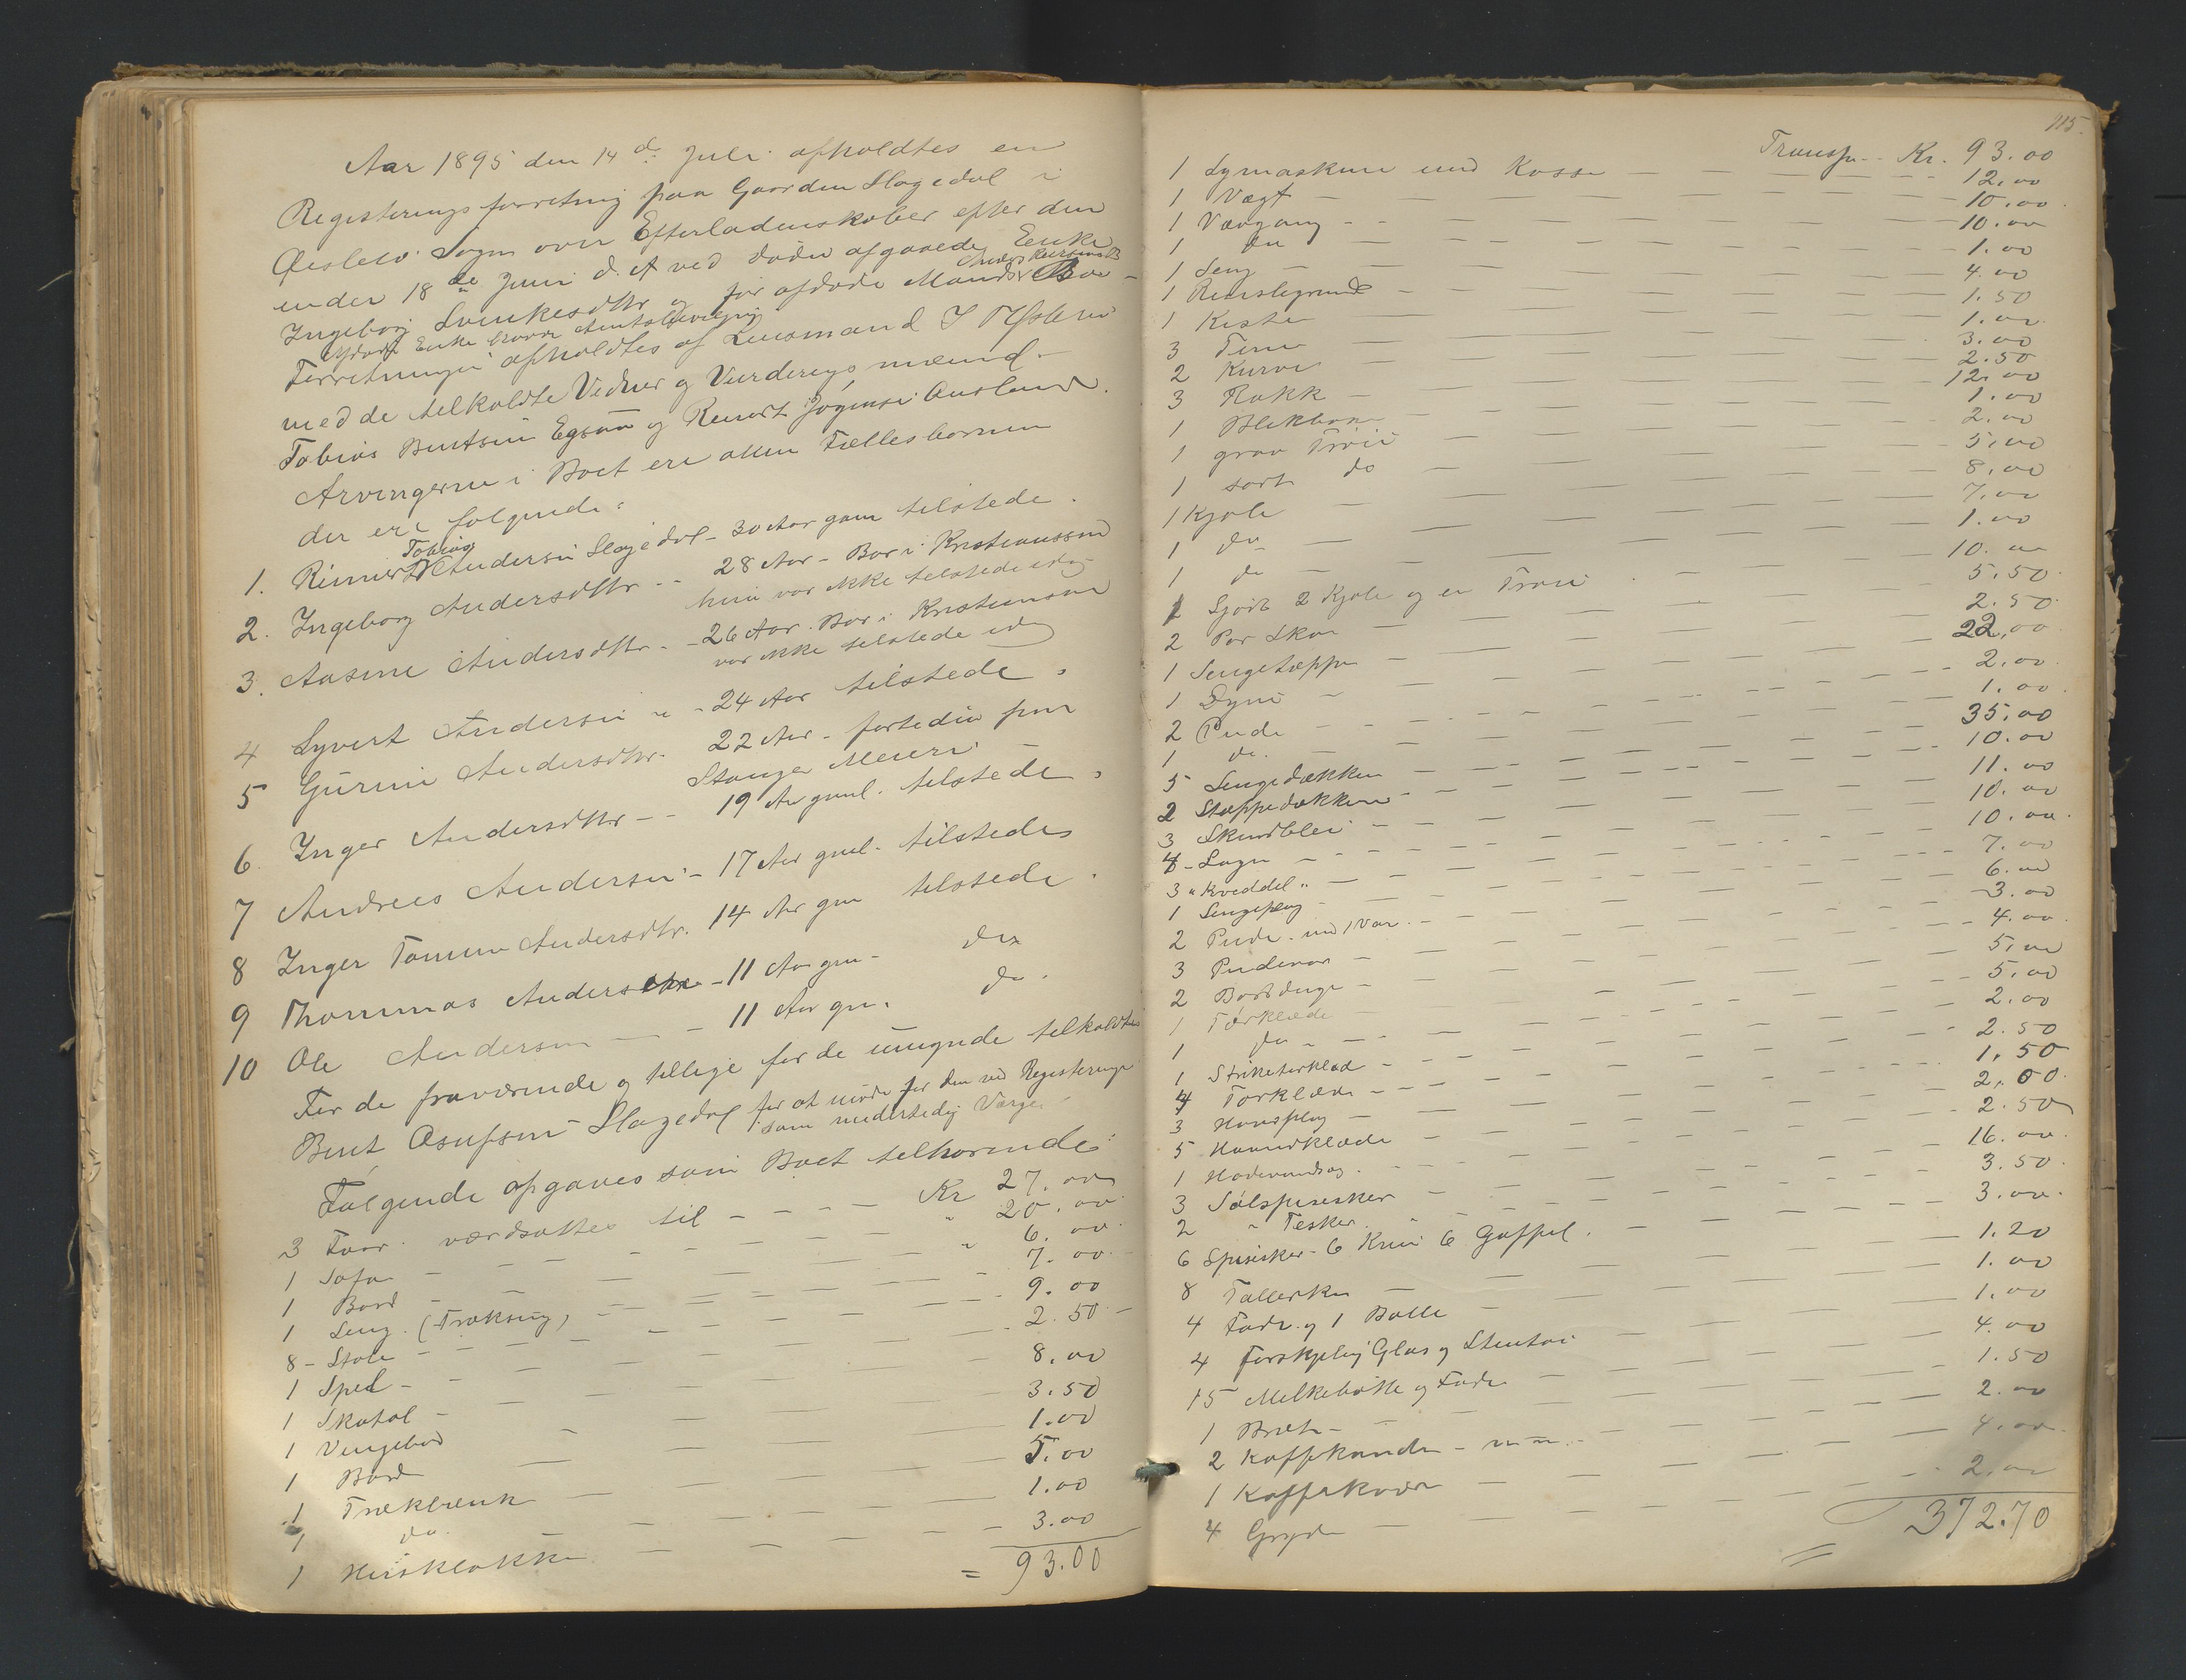 Aar 1895 den 14de Juli afholdtes en
Registeringsforretning paa Gaarden Slogedal i
Øieslew Sogn over Efterladenskaber efter den
under 18de Juni d. A ved døden afgaaede Enke
Ingeborg Svenkesdtr og før afdøde Mands Bo
Afdøde Enke
Forretningen afholdtes af Lensmand
med de tilkaldte Vidner og Vurderingsmænd
Tobias Bentsen Egsaa og Reinert Jørgensen Ausland.
Arvingerne i Boet ere allen Fællesbørnene
der ere følgende:
Tobias
1. Reinert Andersen Slogedal - 30 Aar gam tilstede.
2. Ingeborg Andersdtr - - 28 Aar - Bor i Kristianssand
hun var ikke tilstede idag
3. Aasine Andersdtr. - 26 Aar. Bor i Kristianssand
var ikke tilstede idag
4 Syvert Andersen - - 24 Aar tilstede.
5 Gurine Andersdtr. 22 Aar - fortiden paa
Stanger Meieri -
6. Inger Andersdtr - - 19 Aar gml. tilstede.
7 Andreas Andersen - 17 Aar gml. tilstede
8 Inger Tomine Andersdtr. 14 Aar gm tilstede.
9 Thommas Andersen - 11 Aar gm - do
10 Ole Andersen - - 11 Aar gm. do.
For de fraværende og tillige for de umynde tilkaldtes
Bent Osufsen Slogedal for at møde for dem ved Registeringen
som midlertidig Værge
Følgende opgaves som Boet tilhørende:
3 Faar. værdsattes til - - - - Kr 27.00
1 Sofa - - - - " 20.00
1 Bord - - - - " 6.00
1 Seng. (Træksing) - - - 7.00
8 - Stole - - - - 9.00
1 Speil - - - - 2.50
1 Skatol - - - 8.00
1 Vingebord - - - 3.50
1 Bord - - - 1.00
1 Trækbænk - - - 5.00
1 do. - - - 1.00
1 Husklokke - - - 3.00
= 93.00
115.
Transp. - Kr. 93.00
1 Symaskine med Kasse - - - 12.00
1 Vægt - - - 10.00
1 Vævgang - - - 10.00
1 do - - - 1.00
1 Seng - - - 4.00
1 - - - 1.50
1 Kiste - - - 1.00
3 Tine - - - 3.00
2 Kurve - - - 2.50
3 Rokk - - - 12.00
1 - - - 1.00
1 graa Trøie - - - 2.00
1 sort do - - - 5.00
1 Kjole - - - 8.00
1 do - - - 7.00
1 do - - - 1.00
1 Sjørt 2 Kjole og en Trøie - - - 10.00
2 Par Skoe - - - 5.50
1 Sengetæppe - - - 2.50
1 Dyne - - - 22.00
2 Pude - - - 2.00
1 do. - - - 1.00
5 Sengedækken - - - 35.00
2 Stoppedækkene - - - 10.00
3 Skindblei - - - 11.00
4 - Lagn - - - 10.00
3 " Kveddel " - - - 10.00
1 Sengeplag - - - 7.00
2 Pude - med 1 Var - - - 6.00
3 Pudevar - - - 3.00
2 Bordduge - - - 4.00
1 Tørklæde - - - 5.00
1 do - - - 5.00
1 Strikketørklæd - - - 2.00
4 Tørklæde - - - 2.50
3 - - - 1.50
5 Haandklæde - - - 2.00
1 - - - 2.50
3 Sølspisesker - - - 16.00
2 " Tesker. - - - 3.50
6 Spisesker - 6 Kniv 6 Gaffel. - - - 3.00
8 Tallerken - - - 1.20
4 Fade. og 1 Bolle - - - 1.00
4 forskjelig Glas og Stentøi - - - 1.00
15 Melkebøtte og Fade - - - 4.00
1 - - - 1.50
2 Kaffekande - - - 2.00
1 Kaffekvær - - - 4.00
4 Gryde - - - 2.00
372.70